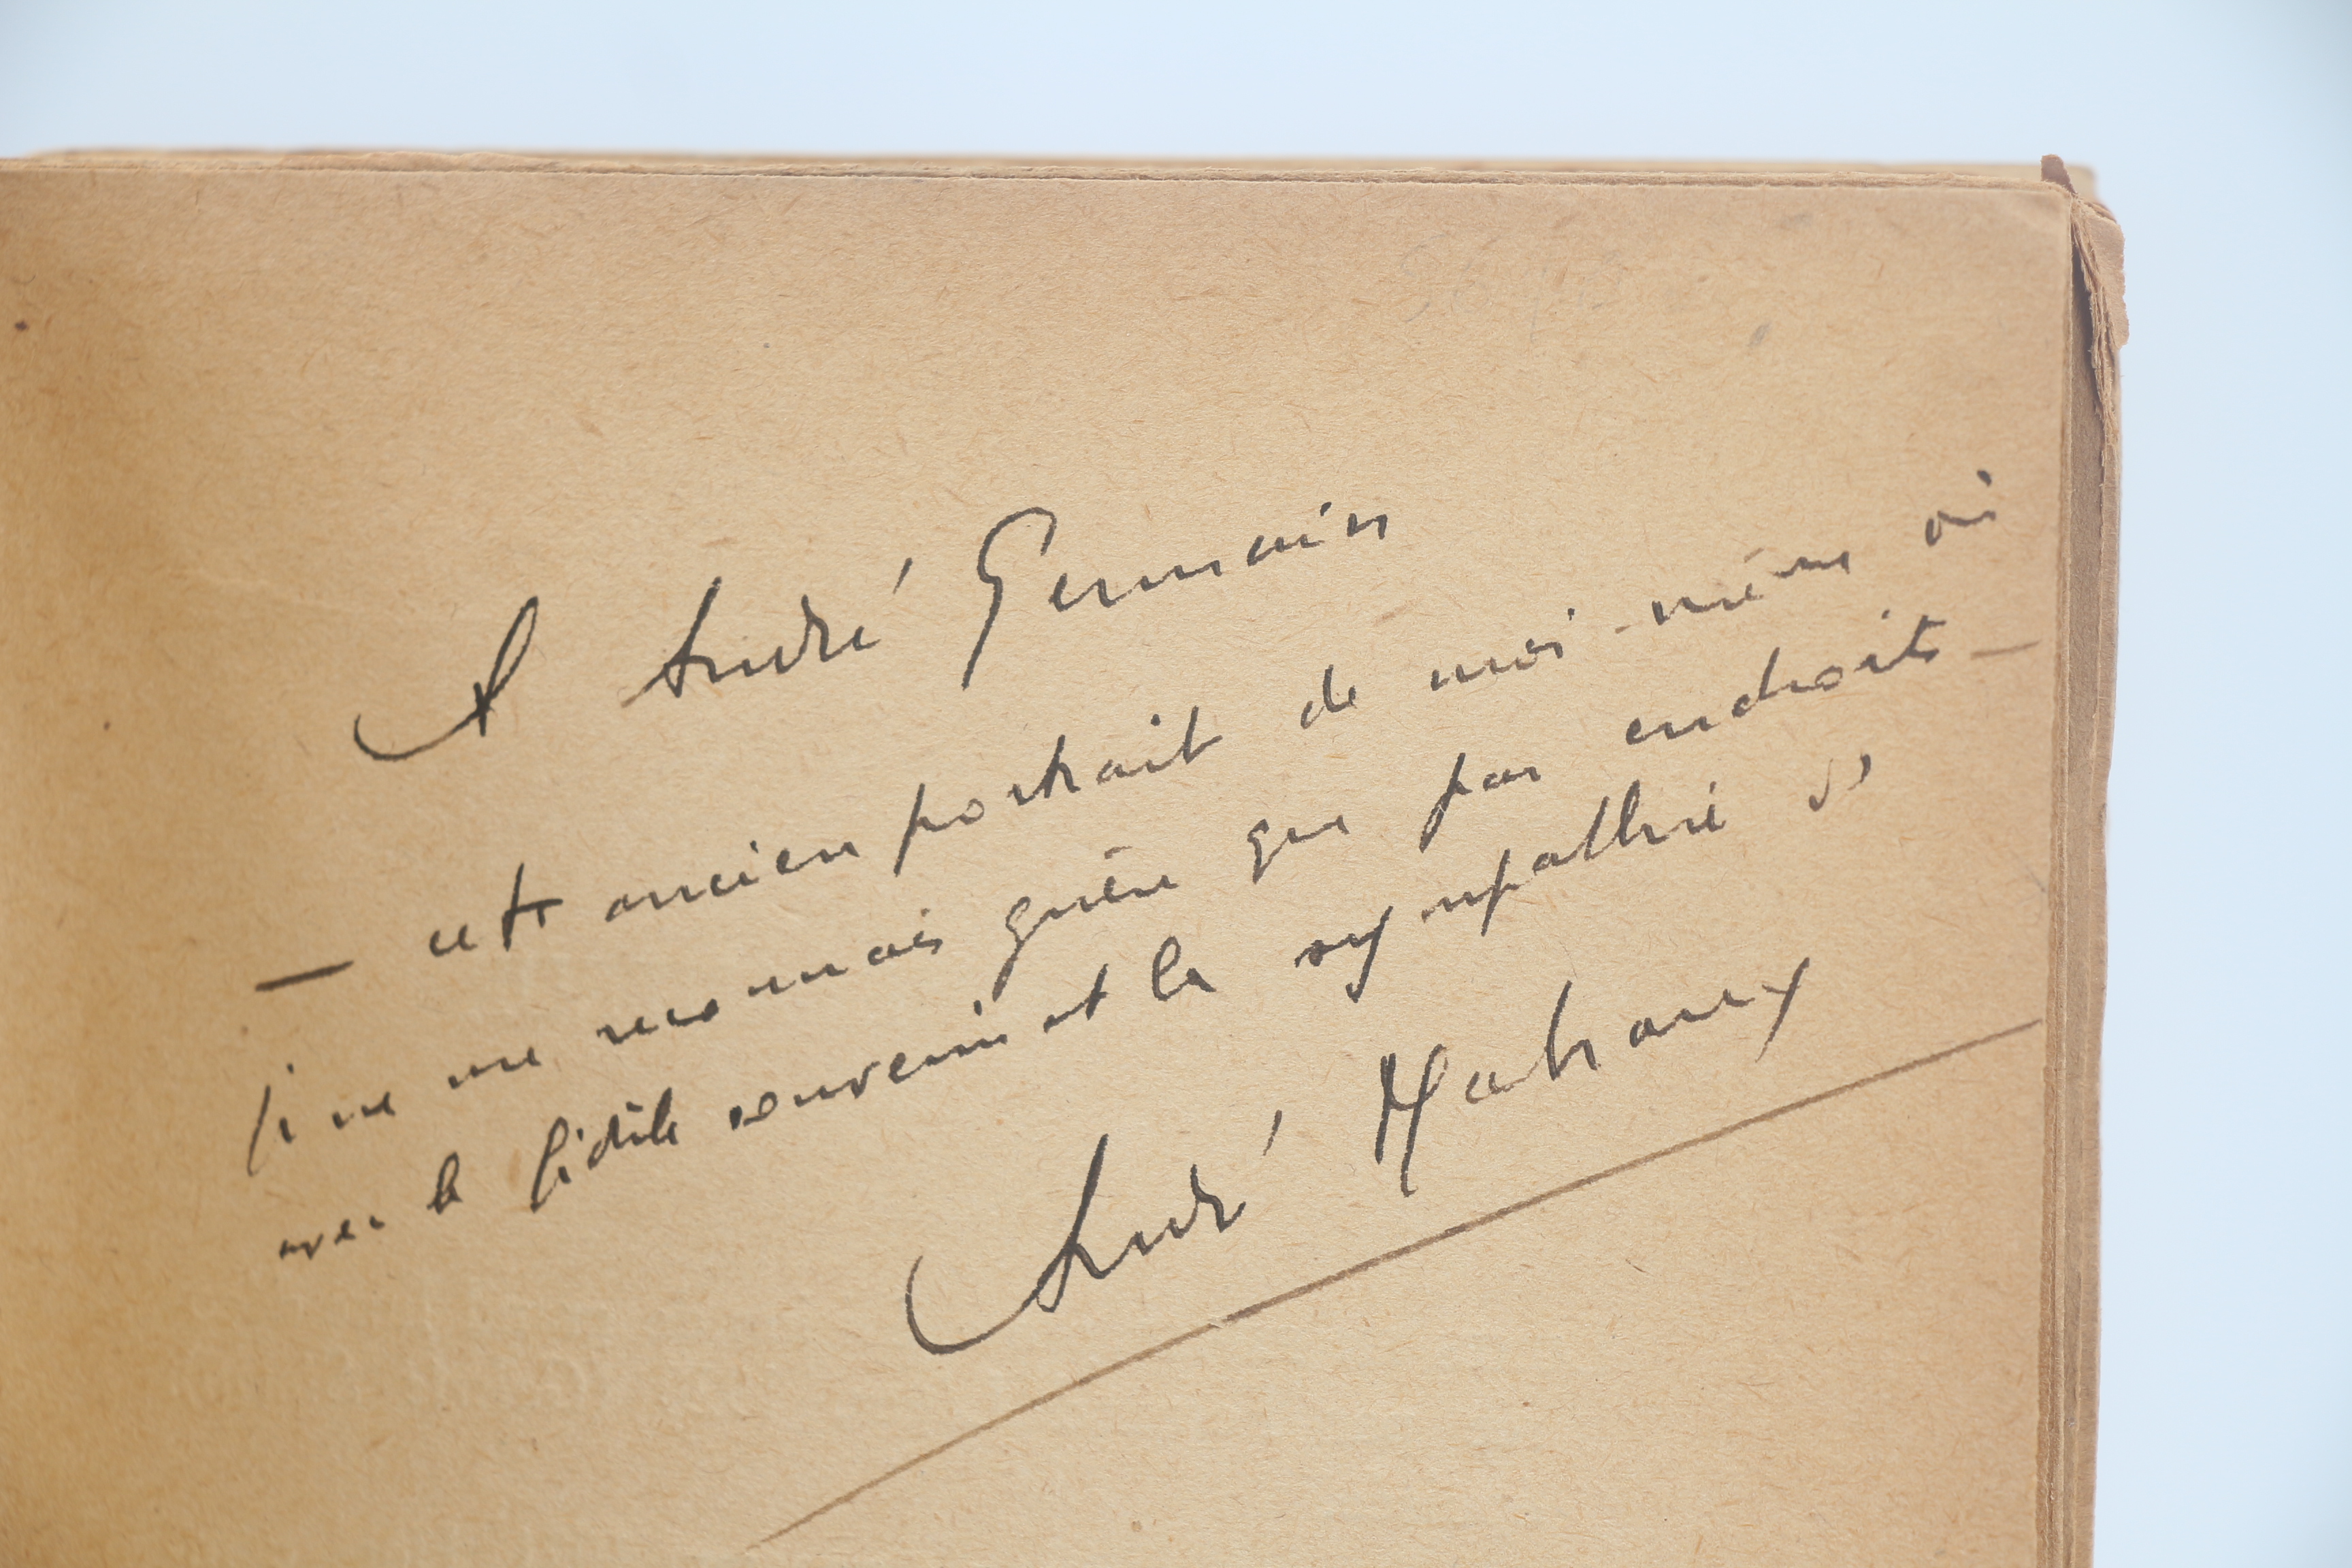 A André Germain
— cet ancien portrait de moi-même où
je ne me reconnais guère que par endroits —
avec le fidèle souvenir et la sympathie d'
André Malraux